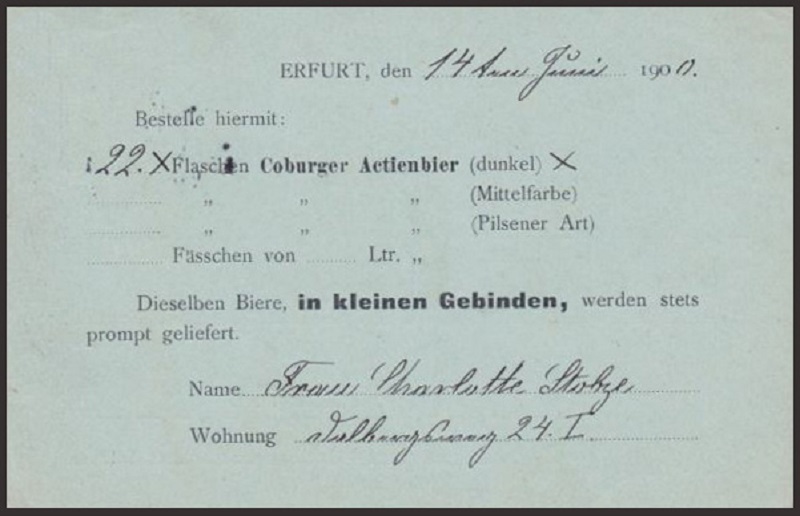 ERFURT, den 14ten Juni 1900.
Bestelle hiermit:
22. X Flaschen Coburger Actienbier (dunkel) X
„ „ „ (Mittelfarbe)
„ „ „ (Pilsener Art)
Fässchen von Ltr. „
Dieselben Biere, in kleinen Gebinden, werden stets
prompt geliefert.
Name Frau Charlotte
Wohnung Dalbergsweg 24. I